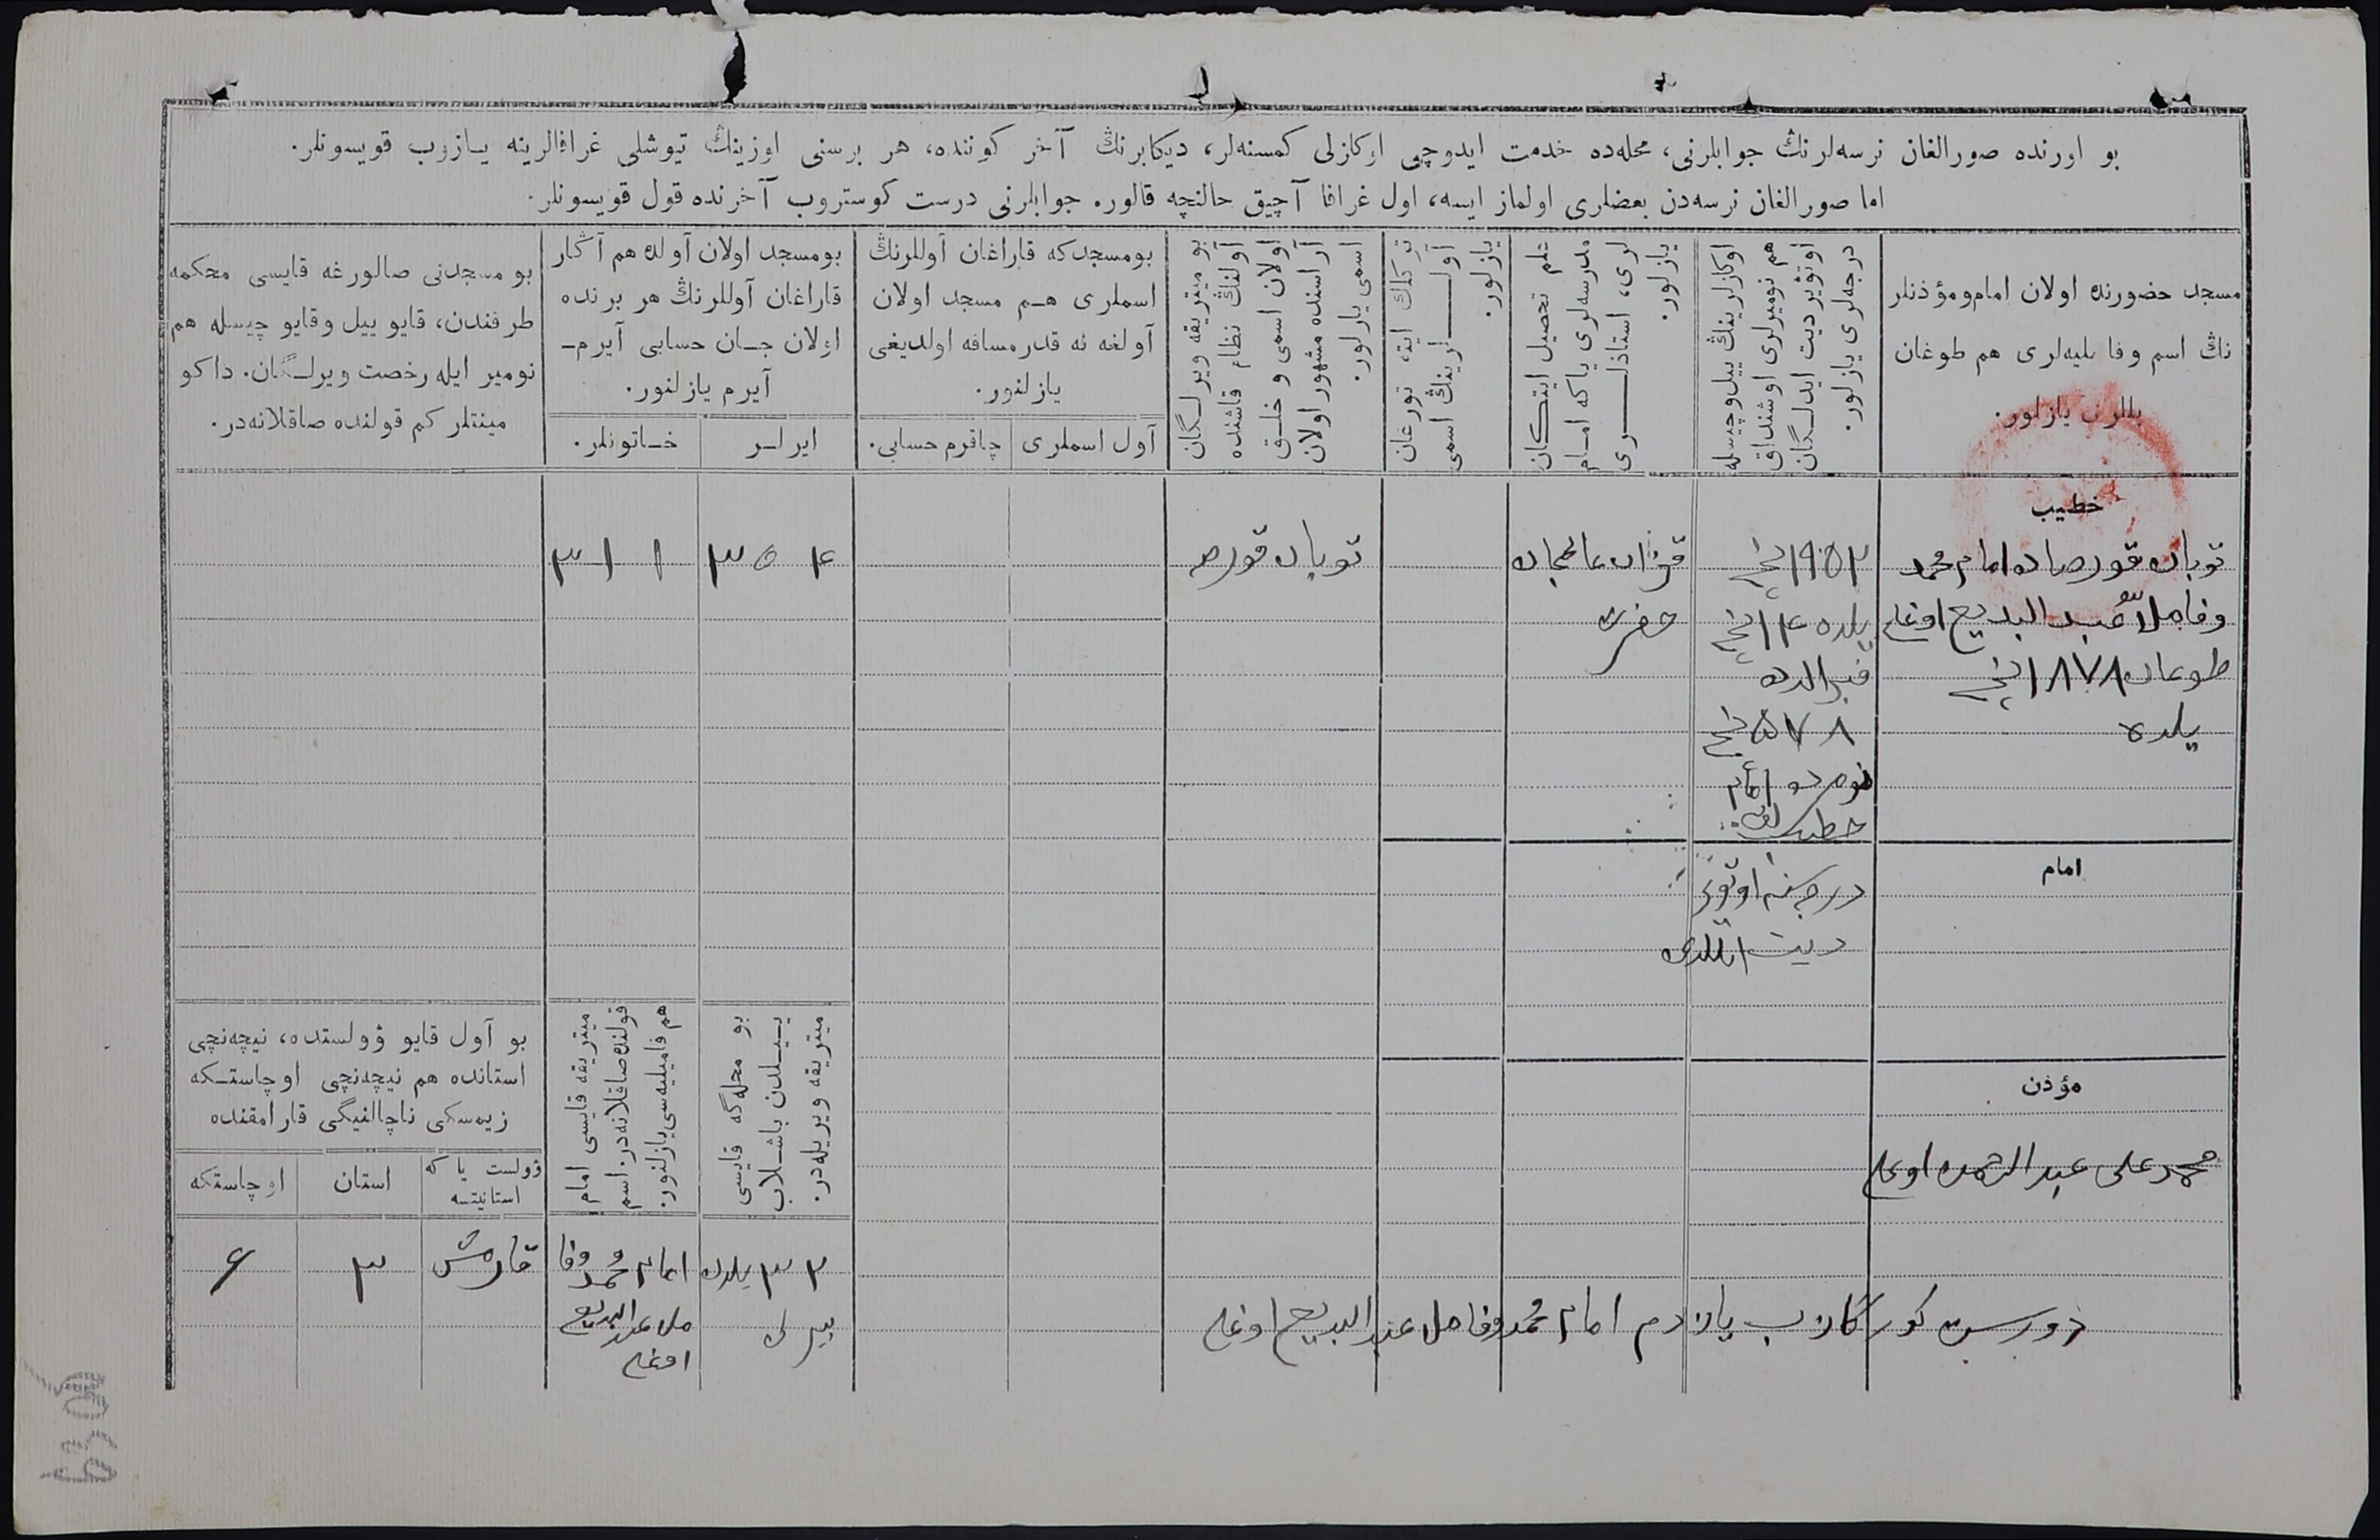 بو اورنده صورالغان نرسه‌لرنڭ جوابلرنی، محله‌ده خدمت ایدوچی اوکازلی کمسنه‌لر، دیکابرنڭ آخر کوننده، هر برسنی اوزینڭ تیوشلی غرافالرینه یازوب قویسونلر.
اما صورالغان نرسه‌دن بعضلری اولماز ایسه، اول غرافا آچیق حالنچه قالور. جوابلرنی درست کوستروب آخرنده قول قویسونلر.
مسجد حضورنده اولان امام و مؤذنلر
نڭ اسم وفامیلیه‌لری هم طوغان
یللری یازلور.
اوکازلرینڭ ییل وچیسله
هم نومیرلری اوشنداق
اوتۋیردیت ایدلـگان
درجه‌لری یازلور.
علم تحصیل ایتـکان
مدرسه‌لری یاکه امام
لری، استاذلـری
یازلور.
ترکلك ایتە، تورغان
آولـلرینڭ اسمی
یازلور.
بو میتریقه ویرلـگان
آولنڭ نظام قاشنده
اولان اسمی و خلـق
آراسنده مشهور اولان
اسمی یازلور.
بومسجدکه قاراغان آوللرنڭ
اسملری هـم مسجد اولان
آولغه نه قدر مسافه اولدیغی
یازلنور.
آول اسملری
چاقرم حسابی.
بومسجد اولان آولده هم آڭار
قاراغان آوللرنڭ هر برنده
اولان جـان حسابی آیرم-
آیرم یازلنور.
ایرلـر
خـاتونلر.
بو مسجدنی صالورغه قایسی محکمه
طرفندن، قایو ییل وقایو چیسله هم
نومیر ایله رخصت ویرلـگان. داکو
مینتلر کم قولنده صاقلانه‌در.
خطیب
توبان قورصاده امام محمد
وفا ملا عبد البدیع اوغلی
طوغان ١٨٧٨ نچی
یلده
١٩٠٢ نچی
یلده ١٤ نچی
فیرالده
٥٧٨ نچی
نومردە امام
خطیب
درجه‌سنه اوتۋیر
دیت ایتلدی
قزان عالمجان
حضرت
توبان قورصه
٣٥٤
٣١١
امام
مؤذن
محمدعلی عبد الرحمن اوغلی
بو محله‌گه قایسی
یـیـلدن باشـلاب
میتریقه ویریله‌در.
میتریقه قایسی امام
قولنده صاقلانه‌در. اسم
هم فامیلیه‌سی یازلنور.
بو آول قایو ۋولستده، نیچه‌نچی
استانده هم نیچه‌نچی اوچاستـکه
زیمسکی ناچالنیگی قارامقنده
ۋولست یاکه
استانیتسه
استان
اوچاستکه
٣٢ یلدن
بیرلی
امام محمد وفا
ملا عبد البدیع
اوغلی
قارمش
٣
٤
دورست کورگازب یازدم امام محمدوفا ملا عبد البدیع اوغلی